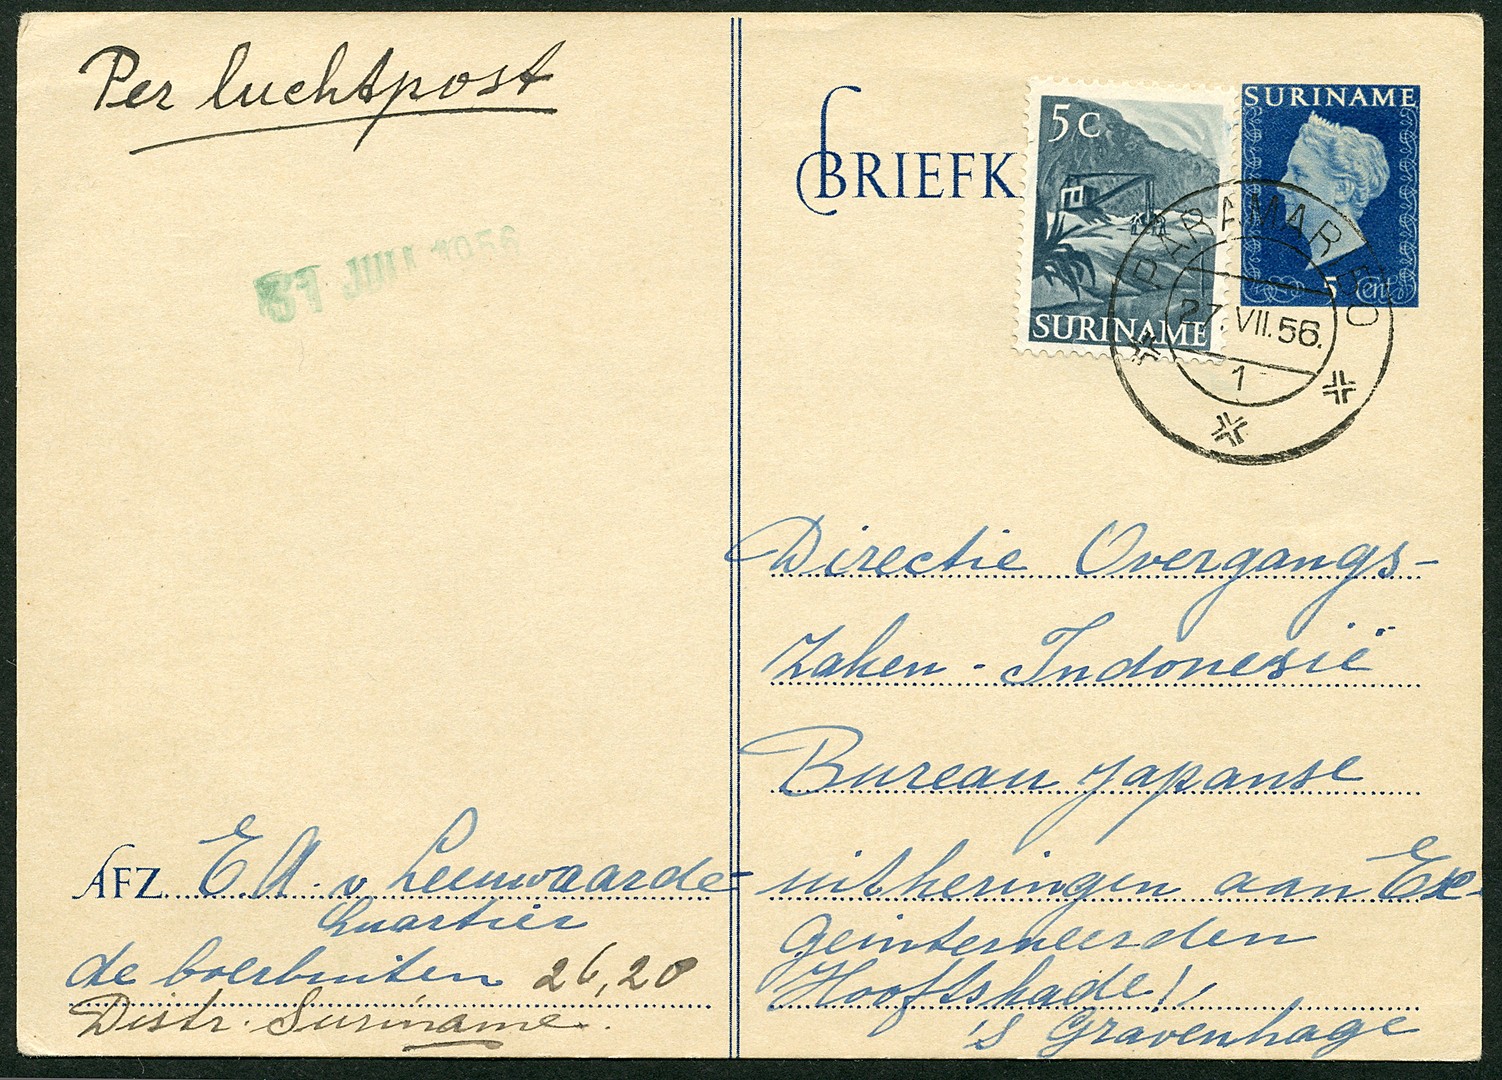 Per luchtpost
31 JULI 1956
BRIEFK
5 C
SURINAME
SURINAME
5 Cent
PARAMARIBO
27.VII.56.
1
Directie Overgangs-
Zaken - Indonesië
Bureau Japanse
uitkeringen aan Ex-
Geinterneerden
Hooftskade 1,
's Gravenhage
AFZ. E. A. v Leeuwaarde-
Quartier
de boerbuiten 26,20
Distr. Suriname.